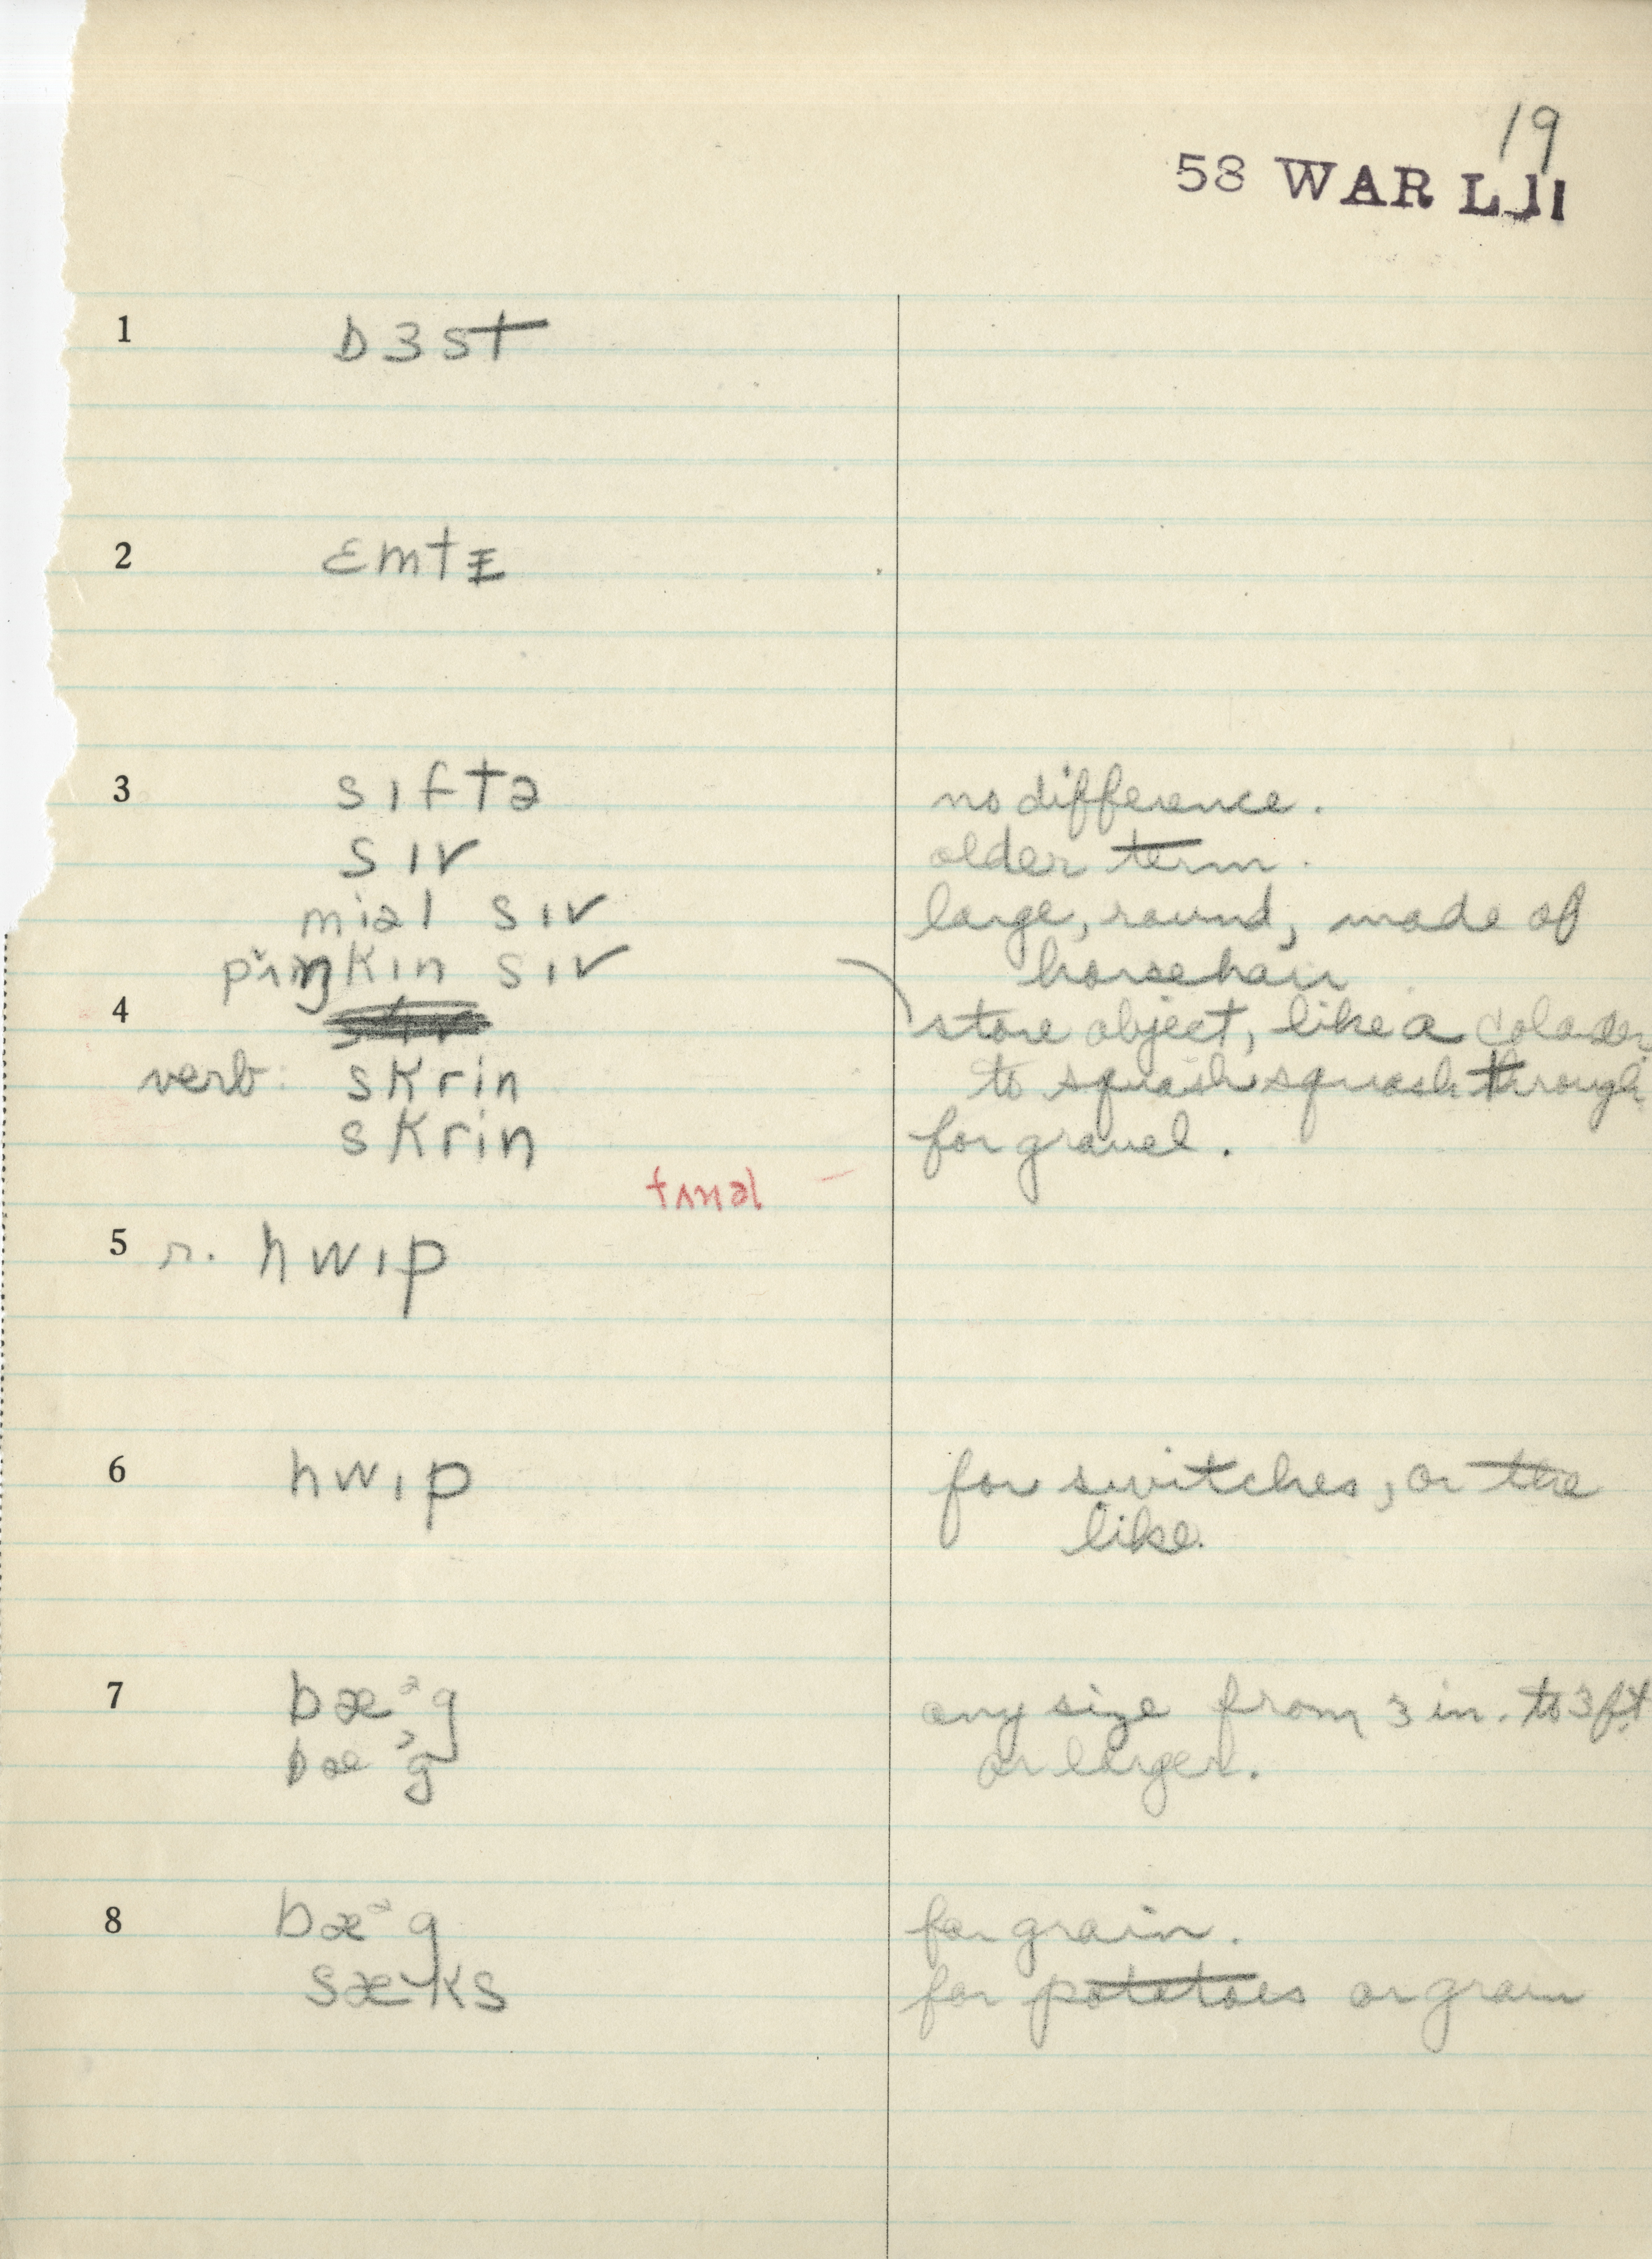 19
58 WAR L 11
1 bɜst
2 ɛmtɪ
3 sɪftə no difference.
sɪv older term.
miəl sɪv large, round, made of
kɪn sɪv horsehair
4 store object, like a colader
verb: skrin to squash squash through
skrin for gravel.
tʌnəl
5 r. hwɪp
6 hwɪp for switches, or the
like.
7 bæᵊg any size from 3 in. to 3 ft
bæᵊg or larger.
8 bæᵊg for grain.
sæᵊks for potatoes or grain